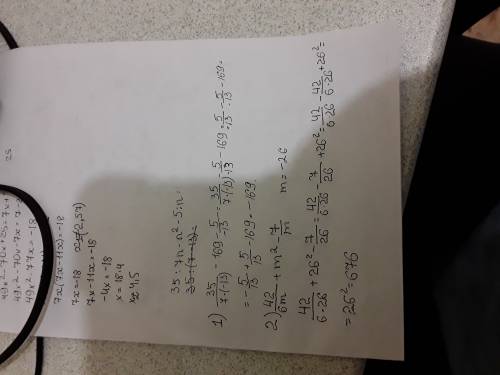 25
49x² - 70x + 25 = 7x +
49x² - 70x - 7x = 7 -
49x² - 77x = -18
7x(7x - 11x) = -18
7x = 18
7x - 11x = -18
-4x = -18
x = 18:4
x = 4,5
35 : 7n - n² - 5 : n =
1) 35/7·(-13) - 169 - 5/-13 = 35/7·(-13) - 5/-13 - 169 = 5/-13 - 5/-13 - 169 =
= -5/13 + 5/13 - 169 = -169.
2) 42/6m + m² - 7/m m = -26
42/6·26 + 26² - 7/26 = 42/6·26 - 7/26 + 26² = 42/6·26 - 42/6·26 + 26² =
= 26² = 676